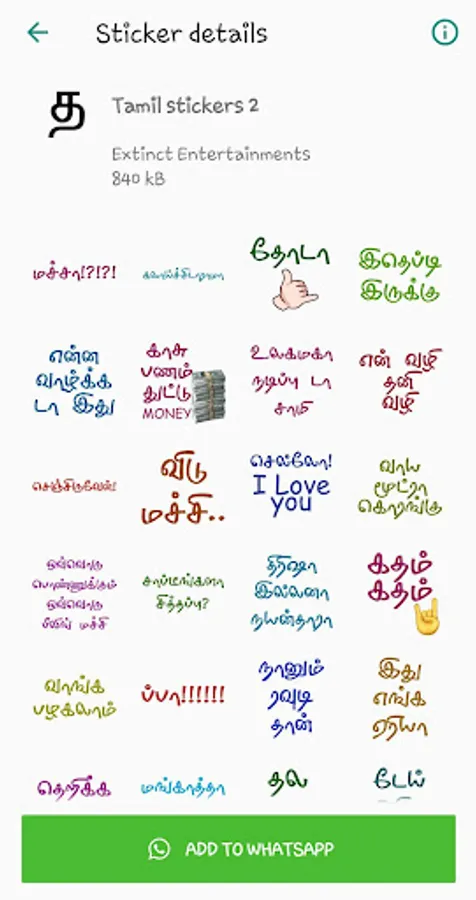 Sticker details
த
Tamil stickers 2
Extinct Entertainments
840 kB
மச்சா!?!?!
கலாய்ச்சிடாராமா
தோடா
இதெப்டி
இருக்கு
என்ன
வாழ்க்க
டா இது
காசு
பணம்
துட்டு
MONEY
உலகமகா
நடிப்பு டா
சாமி
என் வழி
தனி
வழி
செஞ்சிருவேன்!
விடு
மச்சி..
செல்லோ!
I Love
you
வாய
மூட்ரா
கொரங்கு
ஒவ்வொரு
பொண்ணுக்கும்
ஒவ்வொரு
பீலிங் மச்சி
சாப்மங்களா
சித்தப்பு?
திரிஷா
இல்லனா
நயன்தாரா
கதம்
கதம்
வாங்க
பழகலாம்
ப்பா!!!!!!
நானும்
ரவுடி
தான்
இது
எங்க
ஏரியா
தெறிக்க
மங்காத்தா
தல
டேய்
ADD TO WHATSAPP